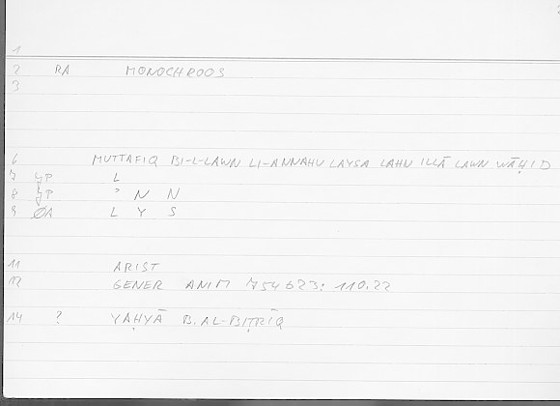 1
2 RA MONOCHROOS
3
6 MUTTAFIQ BI-L-LAWN LI-ANNAHU LAYSA LAHU ILLĀ LAWN WĀḤID
7 ȜP L
8 ȜP ʾ N N
9 ØA L Y S
11 ARIST
12 GENER ANIM 754b23; 110.22
14 ? YAḤYĀ B. AL-BIṬRĪQ